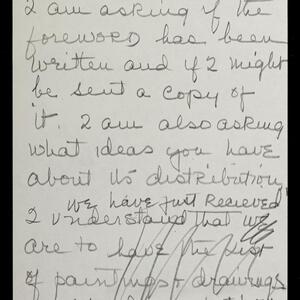 I am asking if the
foreword has been
written and if I might
be sent a copy of
it. I am also asking
what ideas you have
about its distribution
we have just recieved
I understand that we
are to have the list
of paintings & drawings